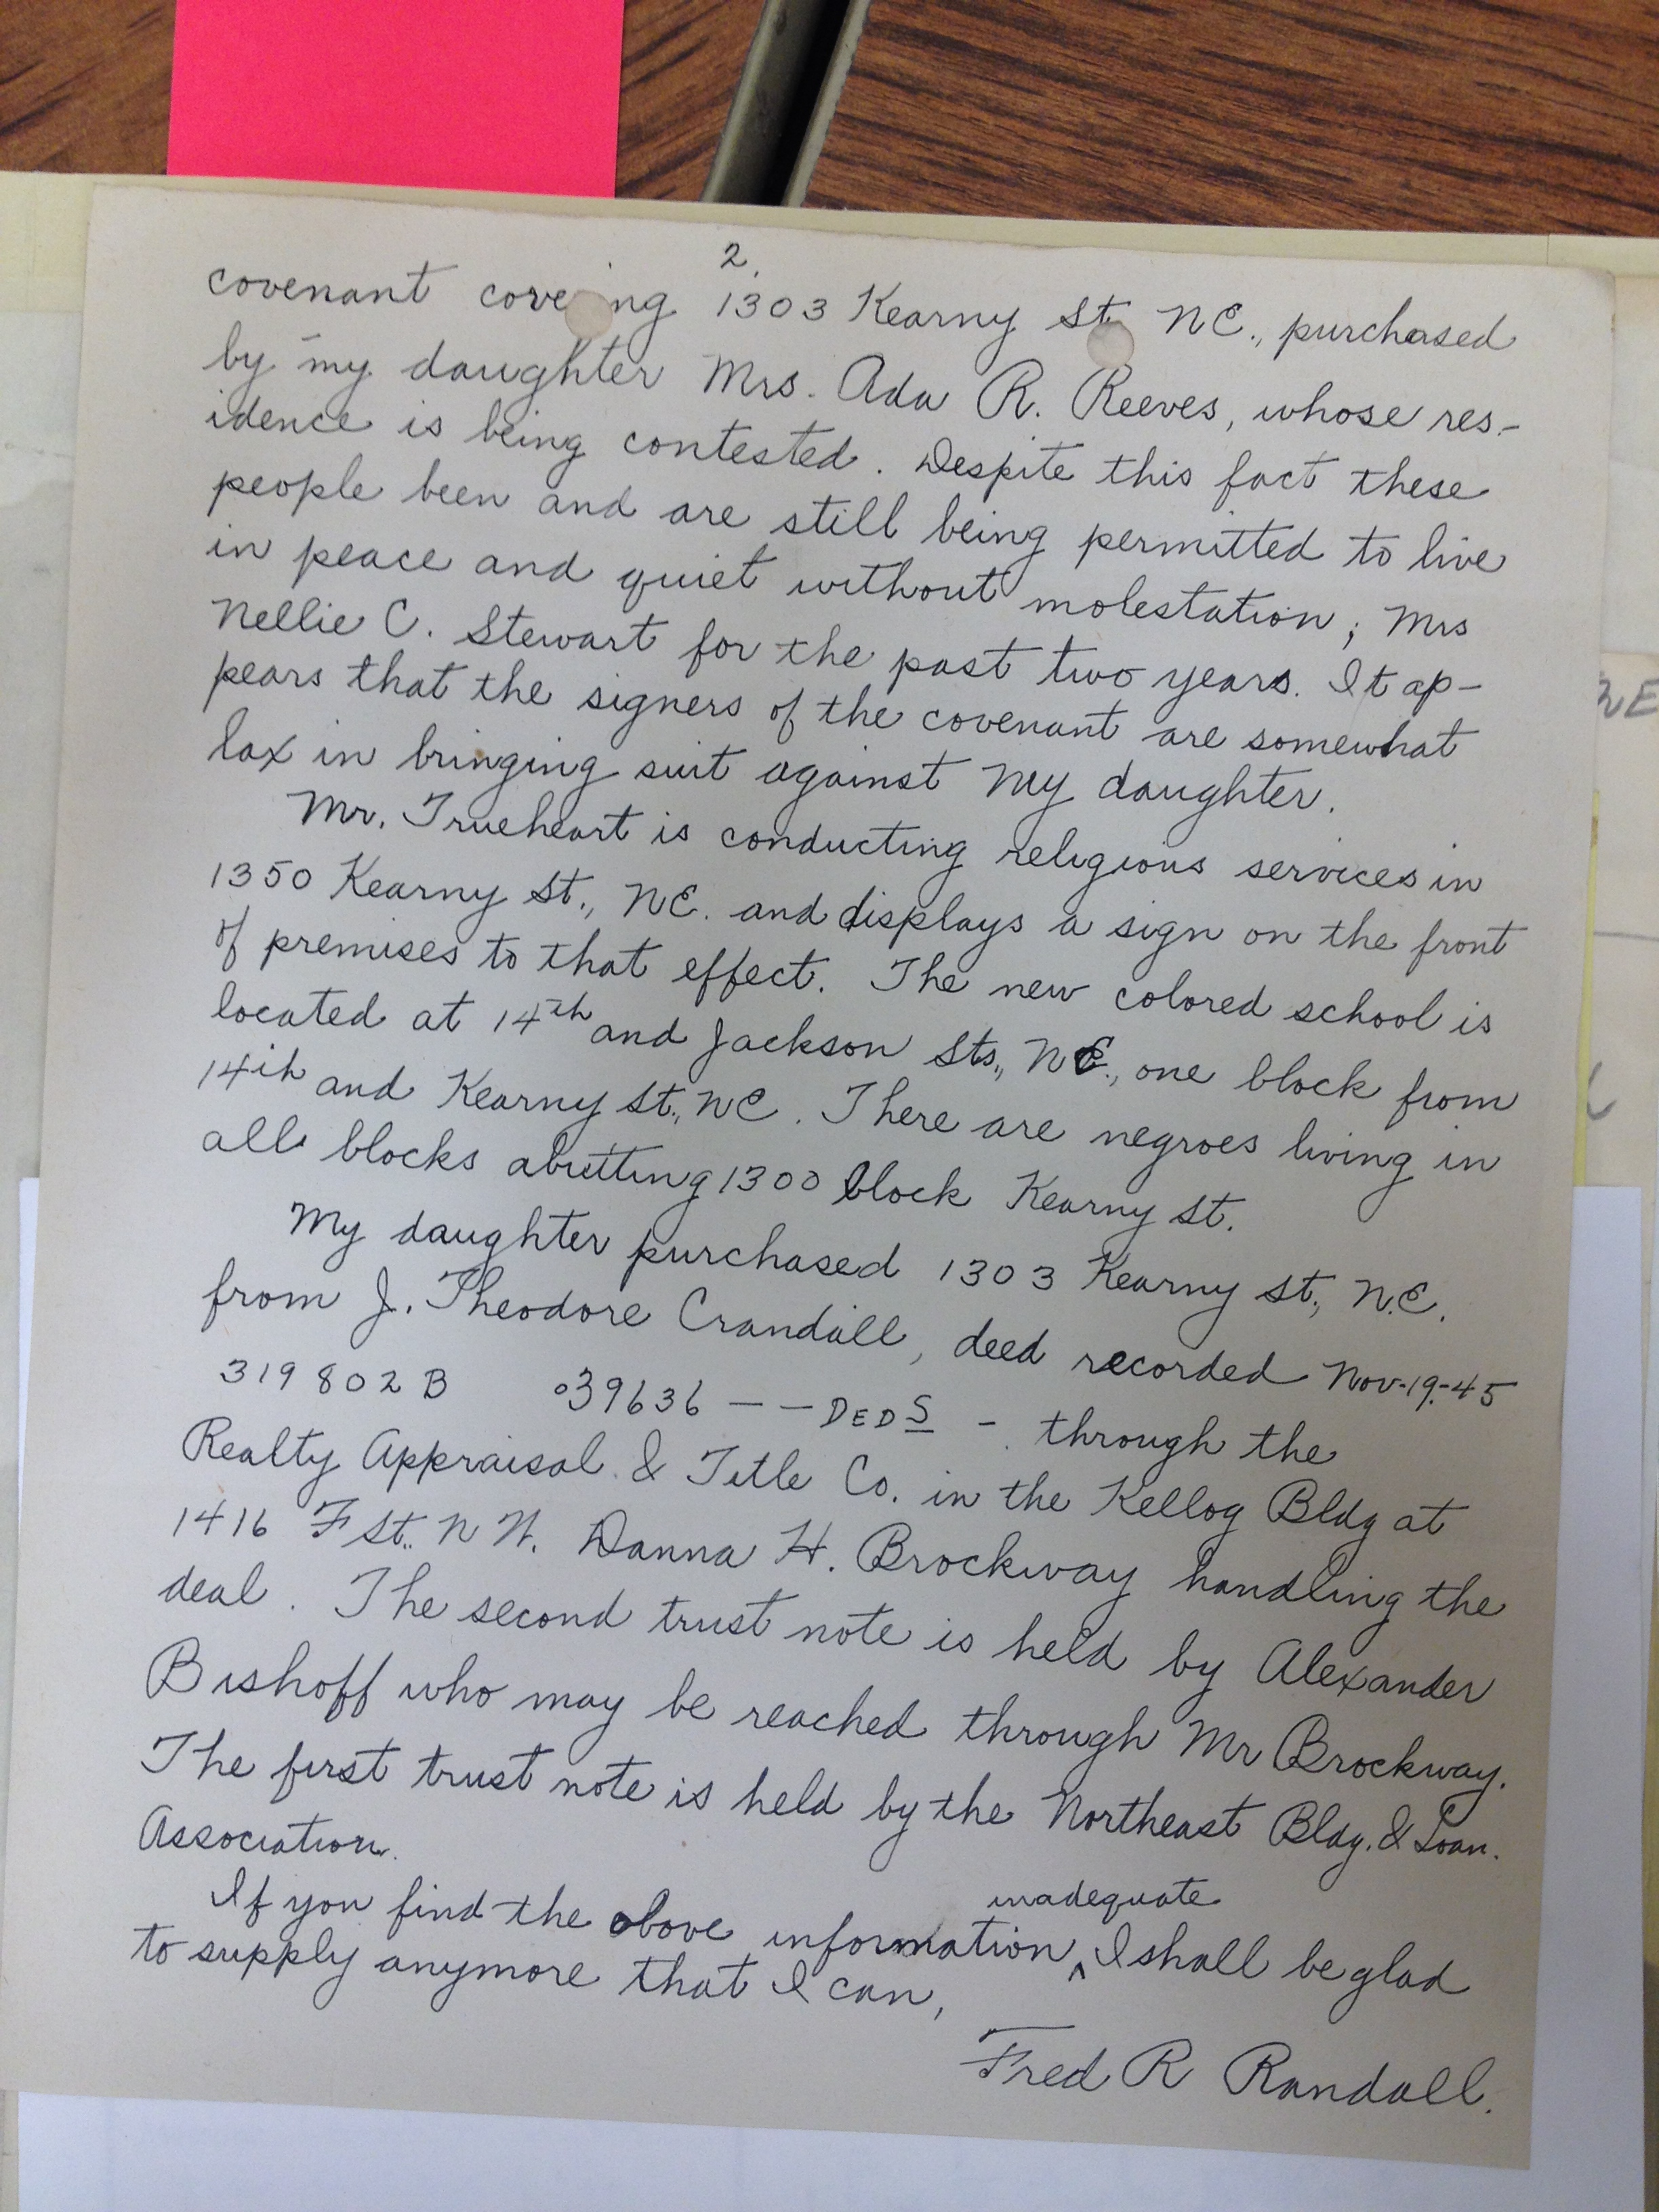 2.
covenant cove ng 1303 Kearny St. NE., purchased
by my daughter Mrs. Ada R. Reeves, whose res-
idence is being contested. Despite this fact these
people been and are still being permitted to live
in peace and quiet without molestation; Mrs
Nellie C. Stewart for the past two years. It ap-
pears that the signers of the covenant are somewhat
lax in bringing suit against my daughter.
Mr. Trueheart is conducting religious services in
1350 Kearny St., NE. and displays a sign on the front
of premises to that effect. The new colored school is
located at 14th and Jackson Sts., NE., one block from
14th and Kearny St., NE. There are negroes living in
all blocks abutting 1300 block Kearny St.
My daughter purchased 1303 Kearny St., N.E.
from J. Theodore Crandall, deed recorded Nov-19-45
319802B 039636 — — DEDS - through the
Realty Appraisal & Title Co. in the Kellog Bldg at
1416 F St. N W. Danna H. Brockway handling the
deal. The second trust note is held by Alexander
Bishoff who may be reached through Mr Brockway.
The first trust note is held by the Northeast Bldg. & Loan.
Association.
If you find the above information ^ inadequate I shall be glad
to supply anymore that I can,
Fred R Randall.
NE